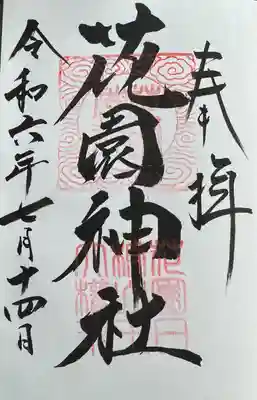 奉拝
花園神社
令和六年七月十四日